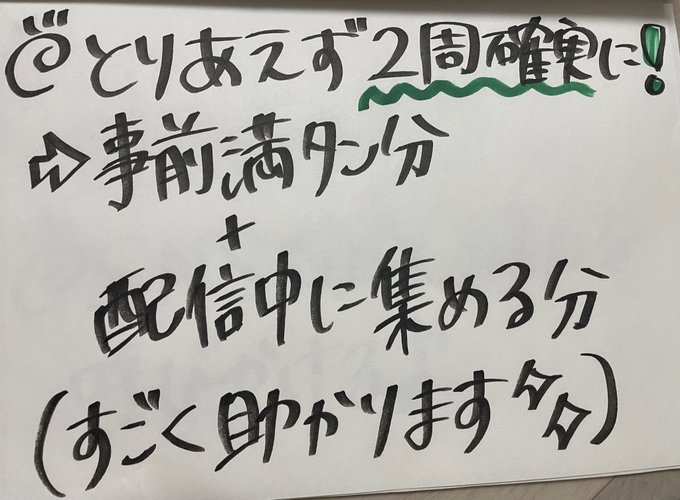 とりあえず2周確実に!
⇨事前満タン分
+
配信中に集める分
(すごく助かります✨)